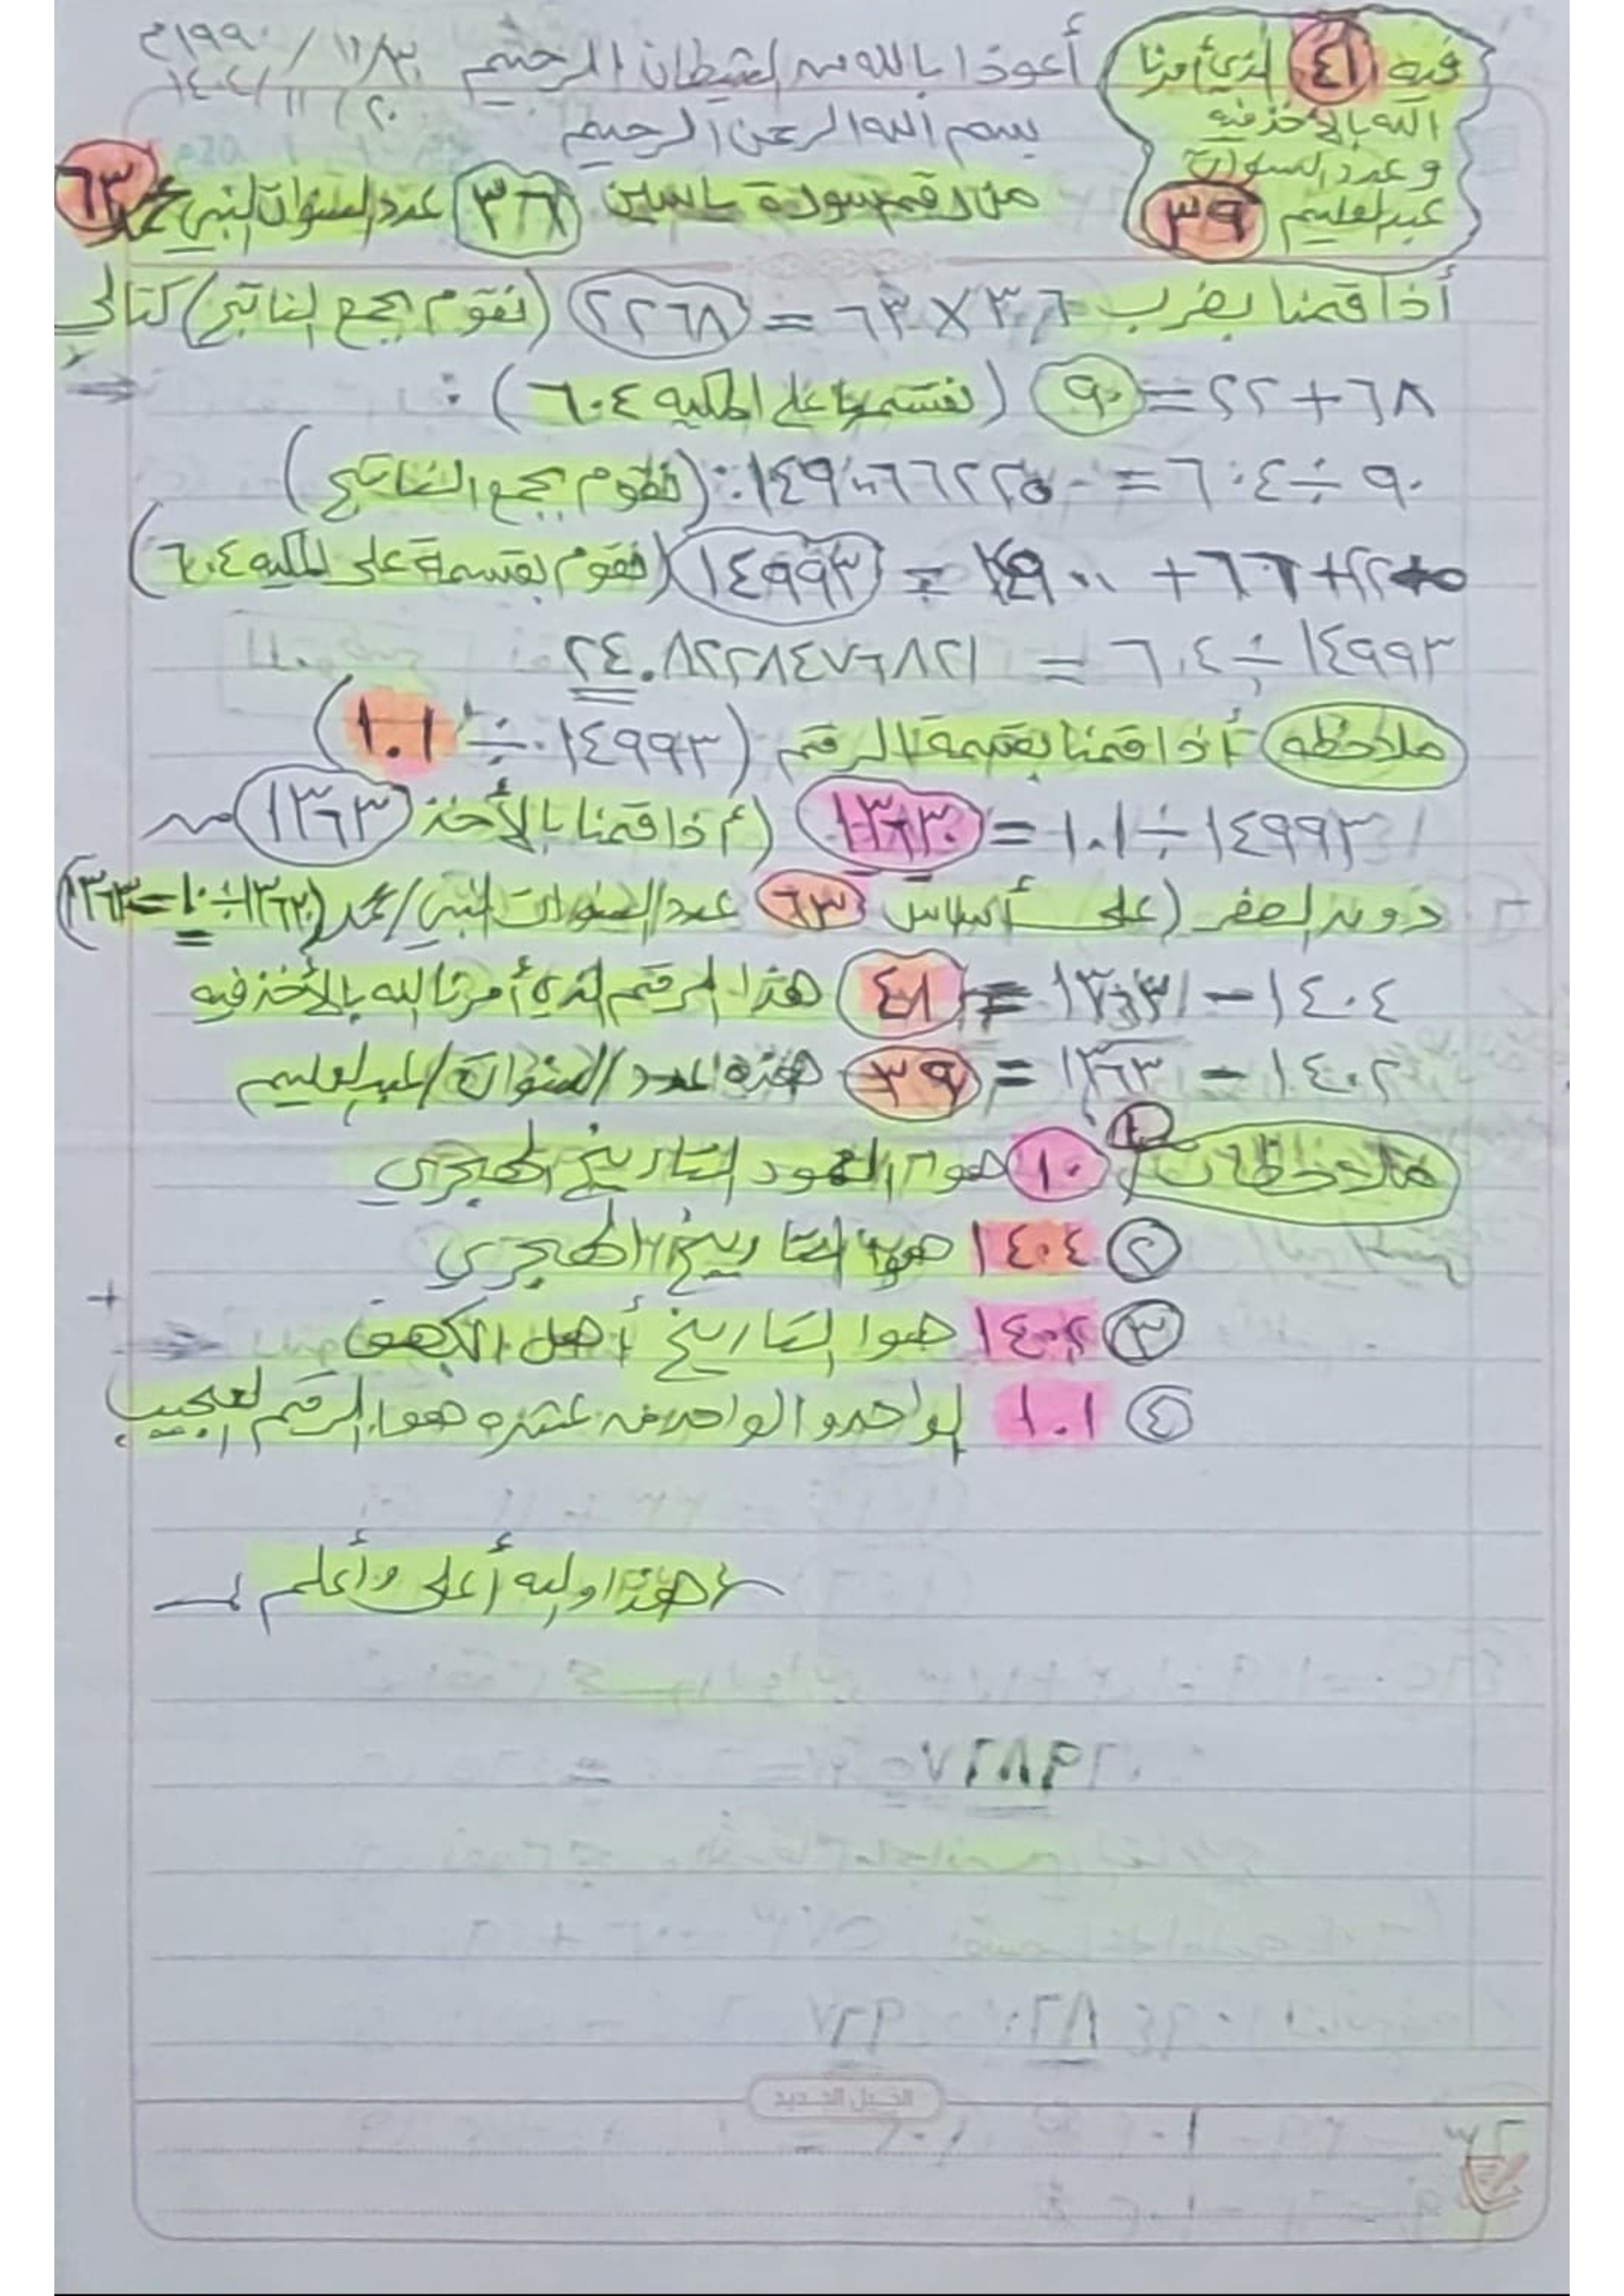 أعوذا بالله من الشيطان الرجيم
بسم الله الرحمن الرحيم
فيه ٤١ الذي أمرنا
الله بالأخذ فيه
وعدد السنوات
عبدالعليم ٣٩
من رقم سورة ياسين ٣٦ عدد السنوات النبي محمد ٦٣
أذا قمنا بضرب ٣٦×٦٣ = ٢٢٦٨ (نقوم بجمع الناتج) كتالي
٦٨+٢٢=٩٠ (نقسمها على المكيه ٦٠٤) :
٩٠ ÷ ٦٠٤ = (نقوم بجمع الناتج)
١٤٩٩٣ (نقوم بقسمة على المكيه ٦٠٤)
١٤٩٩٣ ÷ ٦٠٤ =
ملاحظه أذا قمنا بقسمة الرقم (١٤٩٩٣ ÷ ١.١)
١٤٩٩٣ ÷ ١.١ = ١٣٦٣٠ (أذا قمنا بالأخذ ١٣٦٣ من
دون الصفر (على أساس ٦٣ عدد السنوات النبي/محمد (١٣٦٣٠÷١٠=١٣٦٣)
١٤٠٤ – ١٣٦٣ = ٤١ هذا الرقم الذي أمرنا الله بالأخذ فيه
١٤٠٢ – ١٣٦٣ = ٣٩ هذه عدد السنوات/عبدالعليم
ملاحظات ١ ١٠ هوا العمود التاريخ الهجري
٢ ١٤٠٤ هوا التاريخ الهجري
٣ ١٤٠٢ هوا التاريخ أهل الكهف
٤ ١.١ الواحد والواحد من عشره هوا الرقم العجيب
هذا والله أعلى وأعلم
الجيل الجديد